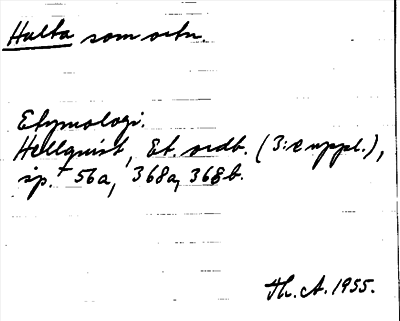 Halta som ortn.
Etymologi.
Hellquist, Et. ordb. (3:e uppl.),
sp. 56a, 368a, 368b.
Th. A. 1955.